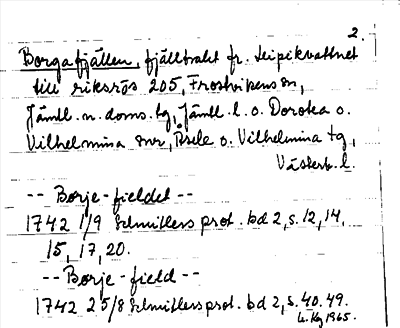 2.
Borgafjällen, fjälltrakt fr. Leipikvattnet
till riksrös 205, Frostvikens sn,
Jämtl. n. doms. tg, Jämtl. l. o. Dorotea o.
Vilhelmina snr, Åsele o. Vilhelmina tg,
Västerb. l.
-- Borje-fieldet --
1742 1/9 Schnitlers prot. bd 2, s. 12, 14,
15, 17, 20.
-- Borje-field --
1742 25/8 Schnitlers prot. bd 2, s. 40, 49.
1965.